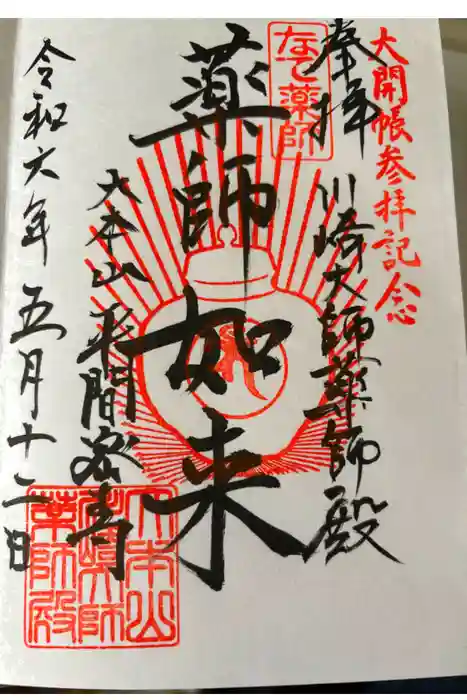 大開帳参拝記念
奉拝
川崎大師薬師殿
なで薬師
薬師如来
大本山 平間密寺
令和六年五月十二日
大本山
川崎大師
薬師殿